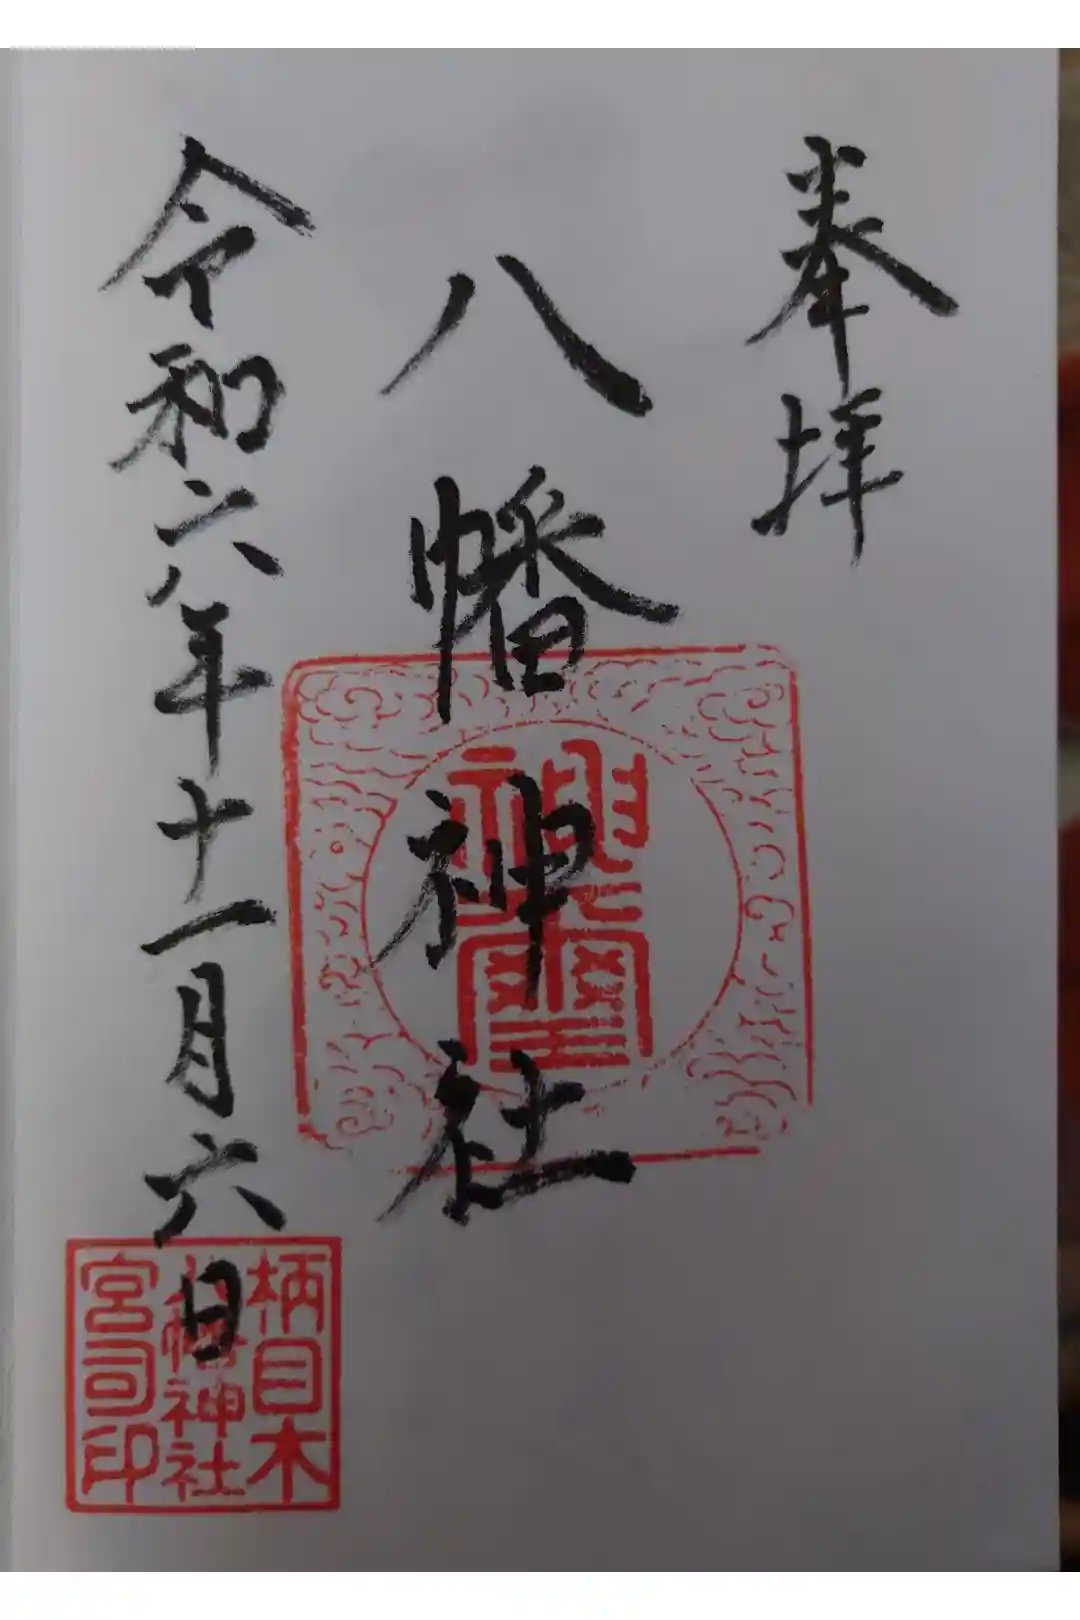 奉拝
八幡神社
令和六年十一月六日
神璽
柄目木
八幡神社
宮司印